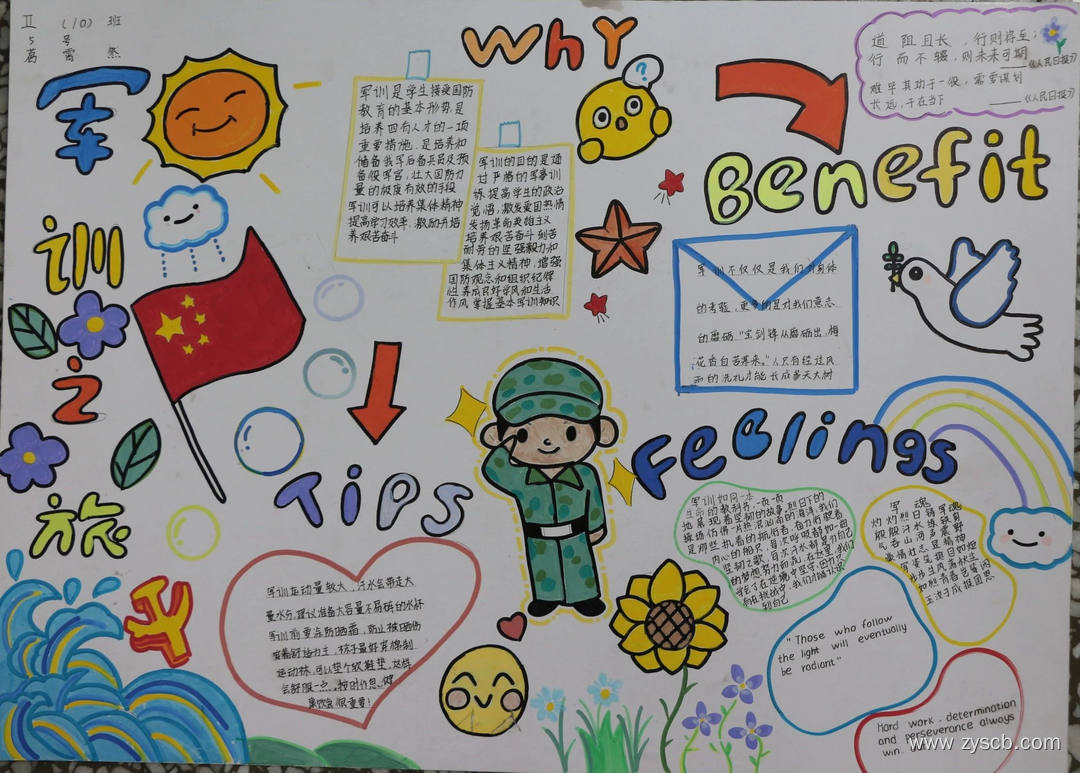 II (10) 班
5 号
葛 雷
军
训
之
旅
Why
军训是学生接受国防
教育的基本形势,是
培养四有人才的一项
重要措施,是培养和
储备我军后备兵员及预
备役军官,壮大国防力
量的极度有效的手段
军训可以培养集体精神
提高学习效率,激励并培
养艰苦奋斗
军训的目的是通
过严格的军事训
练提高学生的政治
觉悟,激发爱国热情
发扬革命英雄主义
培养艰苦奋斗刻苦
耐劳的坚强毅力和
集体主义精神,增强
国防观念和组织纪律
性养成良好学风和生活
作风,掌握基本军训知识
道阻且长,行则将至;
行而不辍,则未来可期
——《人民日报》
难毕其功于一役,需要谋划
长远,干在当下 ——《人民日报》
Benefit
军训不仅仅是我们对身体
的考验,更多的是对我们意志
的磨砺。"宝剑锋从磨砺出,梅
花香自苦寒来。"人只有经过风
雨的洗礼才能长成参天大树
Tips
军训运动量较大,汗水会带走大
量水分,建议准备大容量不易碎的水杯
军训前要涂防晒霜,防止被晒伤
运动袜,可以垫个软鞋垫,这样
会舒服一点。按时作息,健
康饮食很重要!
Feelings
军训如同一本
生命的教科书,一页一页
地展现着坚韧的故事,烈日下的
到自己
军 魂
灼灼烈日铸军魂
股股汗水炼铁身
气吞山河声震野
"Those who follow
the light will eventually
be radiant"
Hard work, determination
and perseverance always
win.
www.zyscb.com